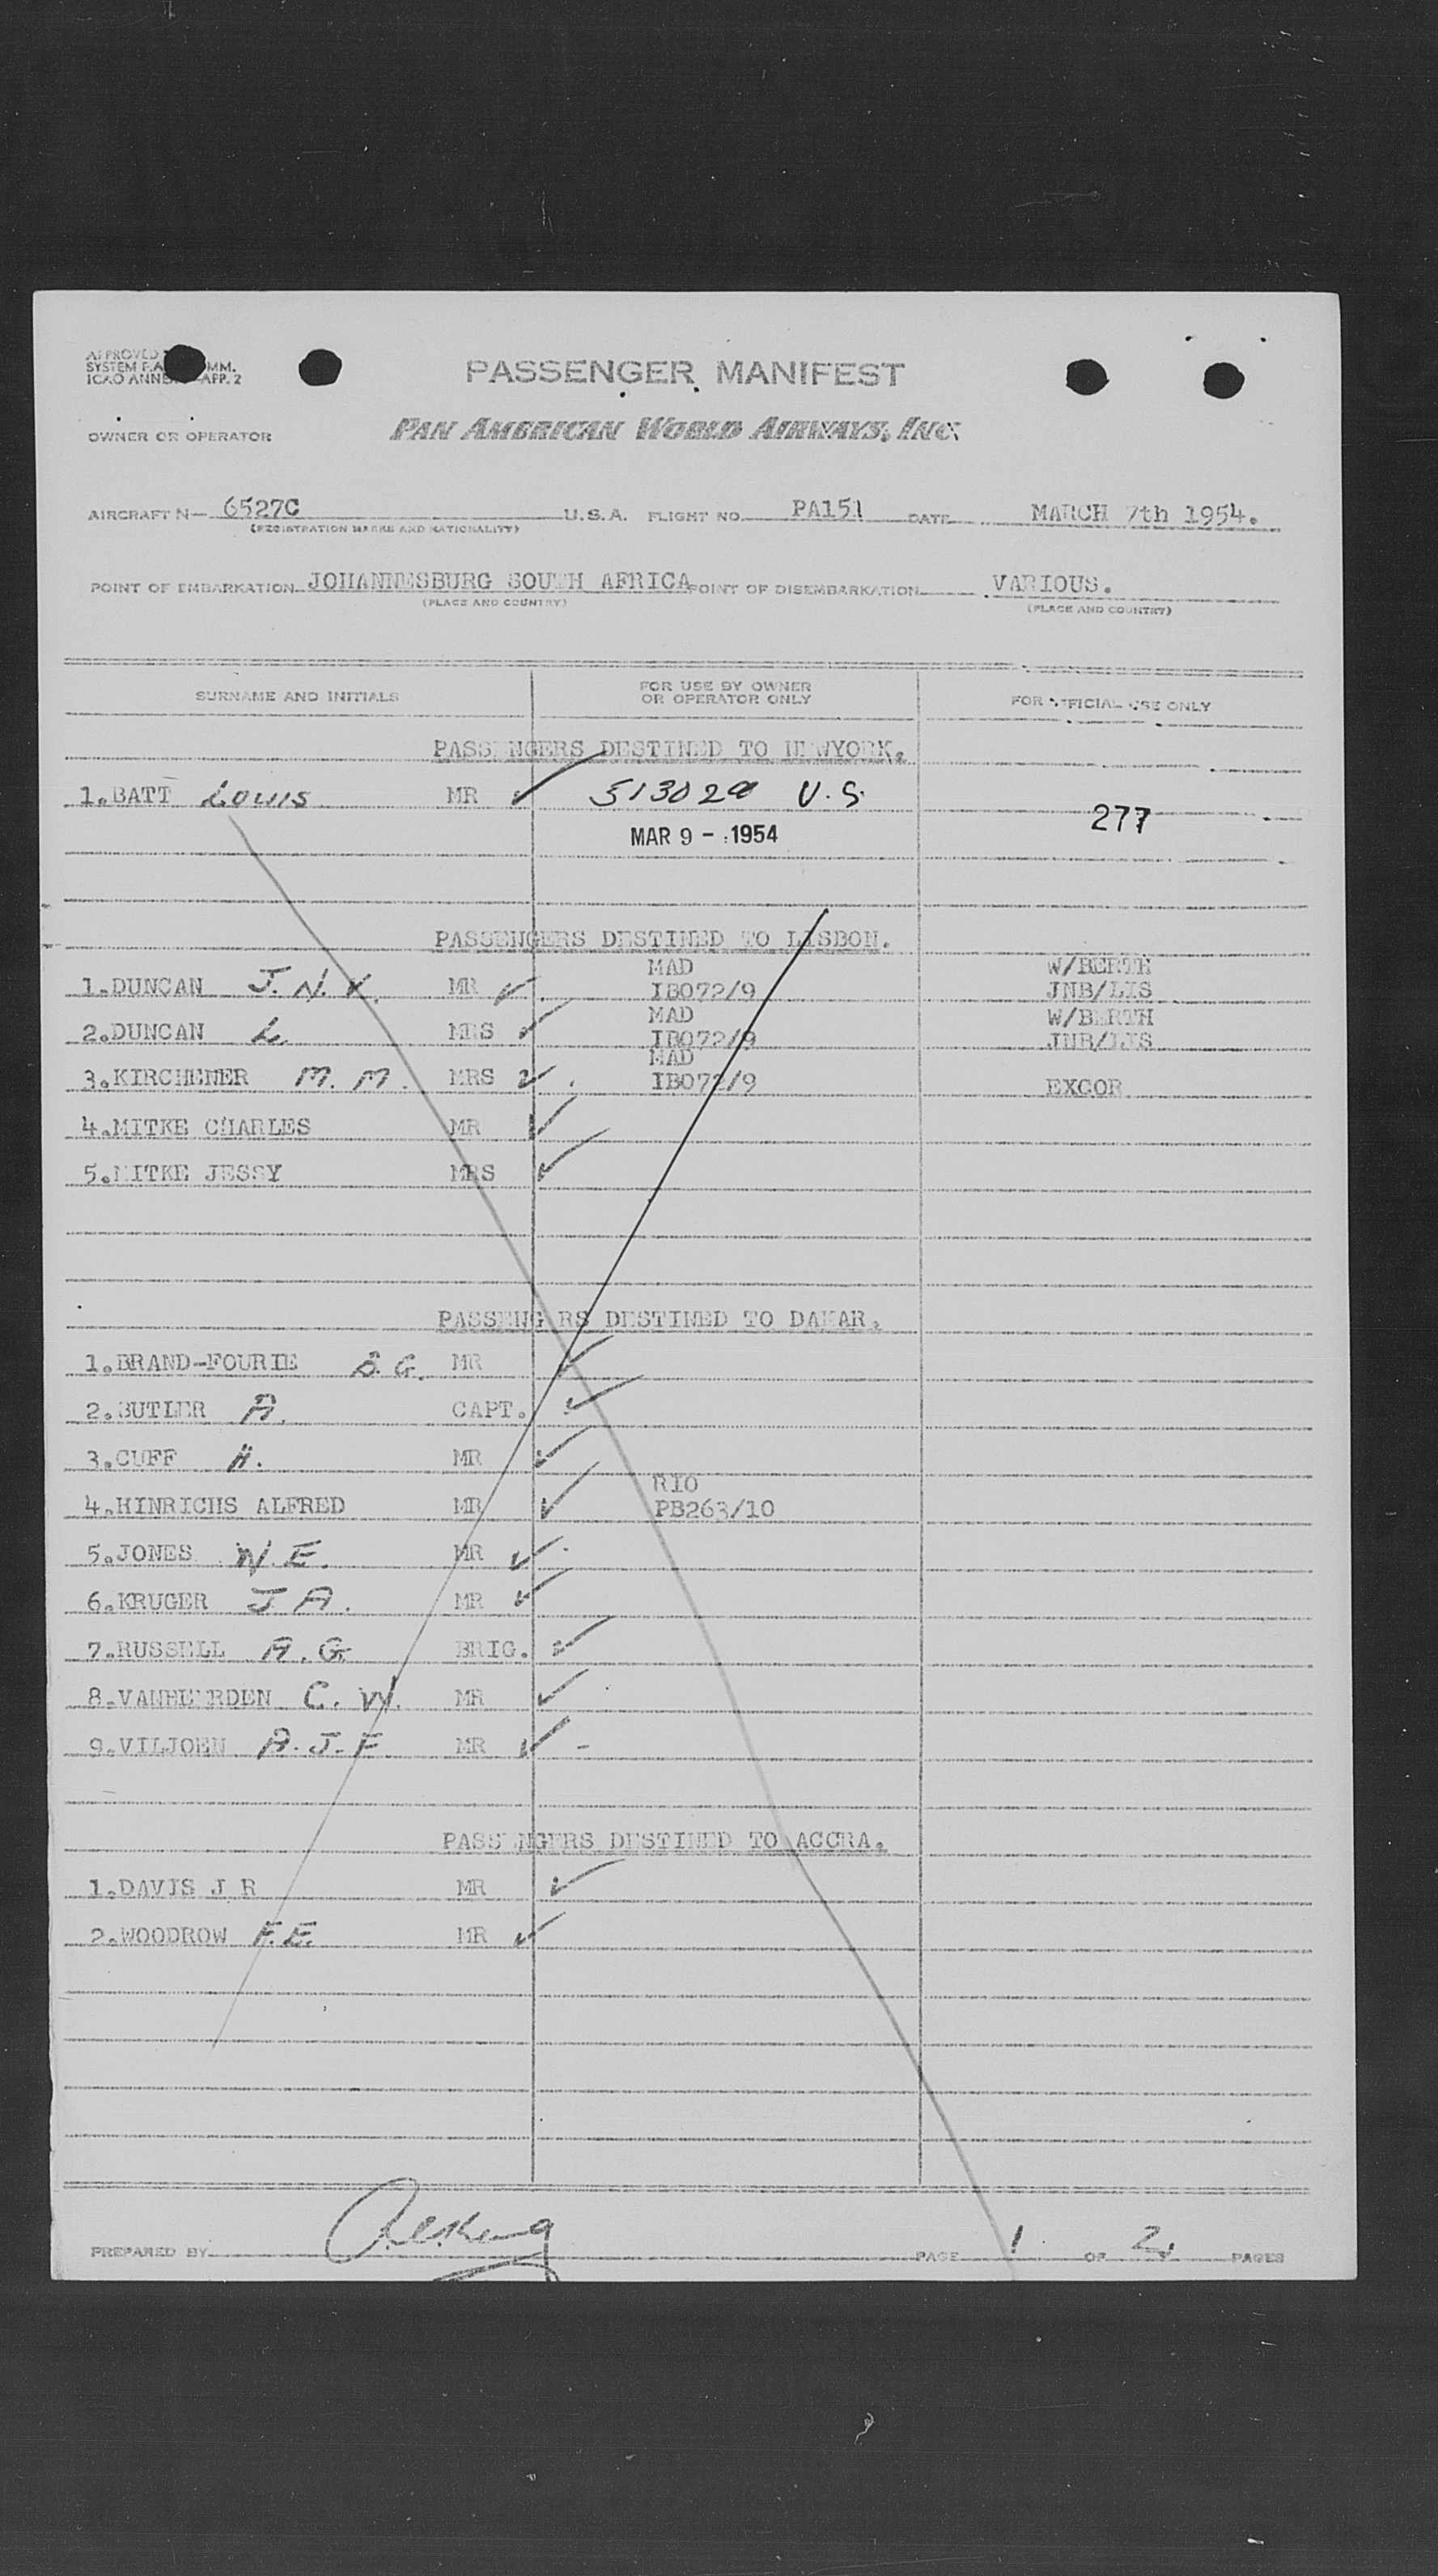 APPROVED
SYSTEM COMM.
ICAO ANNEX APP. 2
PASSENGER MANIFEST
OWNER OR OPERATOR
PAN AMERICAN WORLD AIRWAYS, INC.
AIRCRAFT N— 6527C U.S.A. FLIGHT NO. PA151 DATE MARCH 7th 1954.
(REGISTRATION MARKS AND NATIONALITY)
POINT OF EMBARKATION JOHANNESBURG SOUTH AFRICA POINT OF DISEMBARKATION VARIOUS.
(PLACE AND COUNTRY) (PLACE AND COUNTRY)
SURNAME AND INITIALS FOR USE BY OWNER OR OPERATOR ONLY FOR OFFICIAL USE ONLY
PASSENGERS DESTINED TO NEWYORK.
1.BATT Louis MR ✓ 513029 U.S. 277
MAR 9 - 1954
PASSENGERS DESTINED TO LISBON.
MAD W/BERTH
1.DUNCAN J.N.V. MR ✓ IB072/9 JNB/LIS
MAD W/BERTH
2.DUNCAN L MRS ✓ IB072/9 JNB/LIS
MAD
3.KIRCHENER M.M. MRS ✓ IB072/9 EXCOR
4.MITKE CHARLES MR ✓
5.MITKE JESSY MRS ✓
PASSENGERS DESTINED TO DAKAR.
1.BRAND-FOURIE B.G. MR ✓
2.BUTLER A. CAPT. ✓
3.CUFF H. MR ✓
RIO
4.HINRICHS ALFRED MR ✓ PB263/10
5.JONES W.E. MR ✓
6.KRUGER J A. MR ✓
7.RUSSELL A.G. BRIG. ✓
8.VANHEERDEN C.W. MR ✓
9.VILJOEN A.J.F MR ✓ -
PASSENGERS DESTINED TO ACCRA.
1.DAVIS J R MR ✓
2.WOODROW F.E. MR ✓
PREPARED BY PAGE 1 OF 2. PAGES